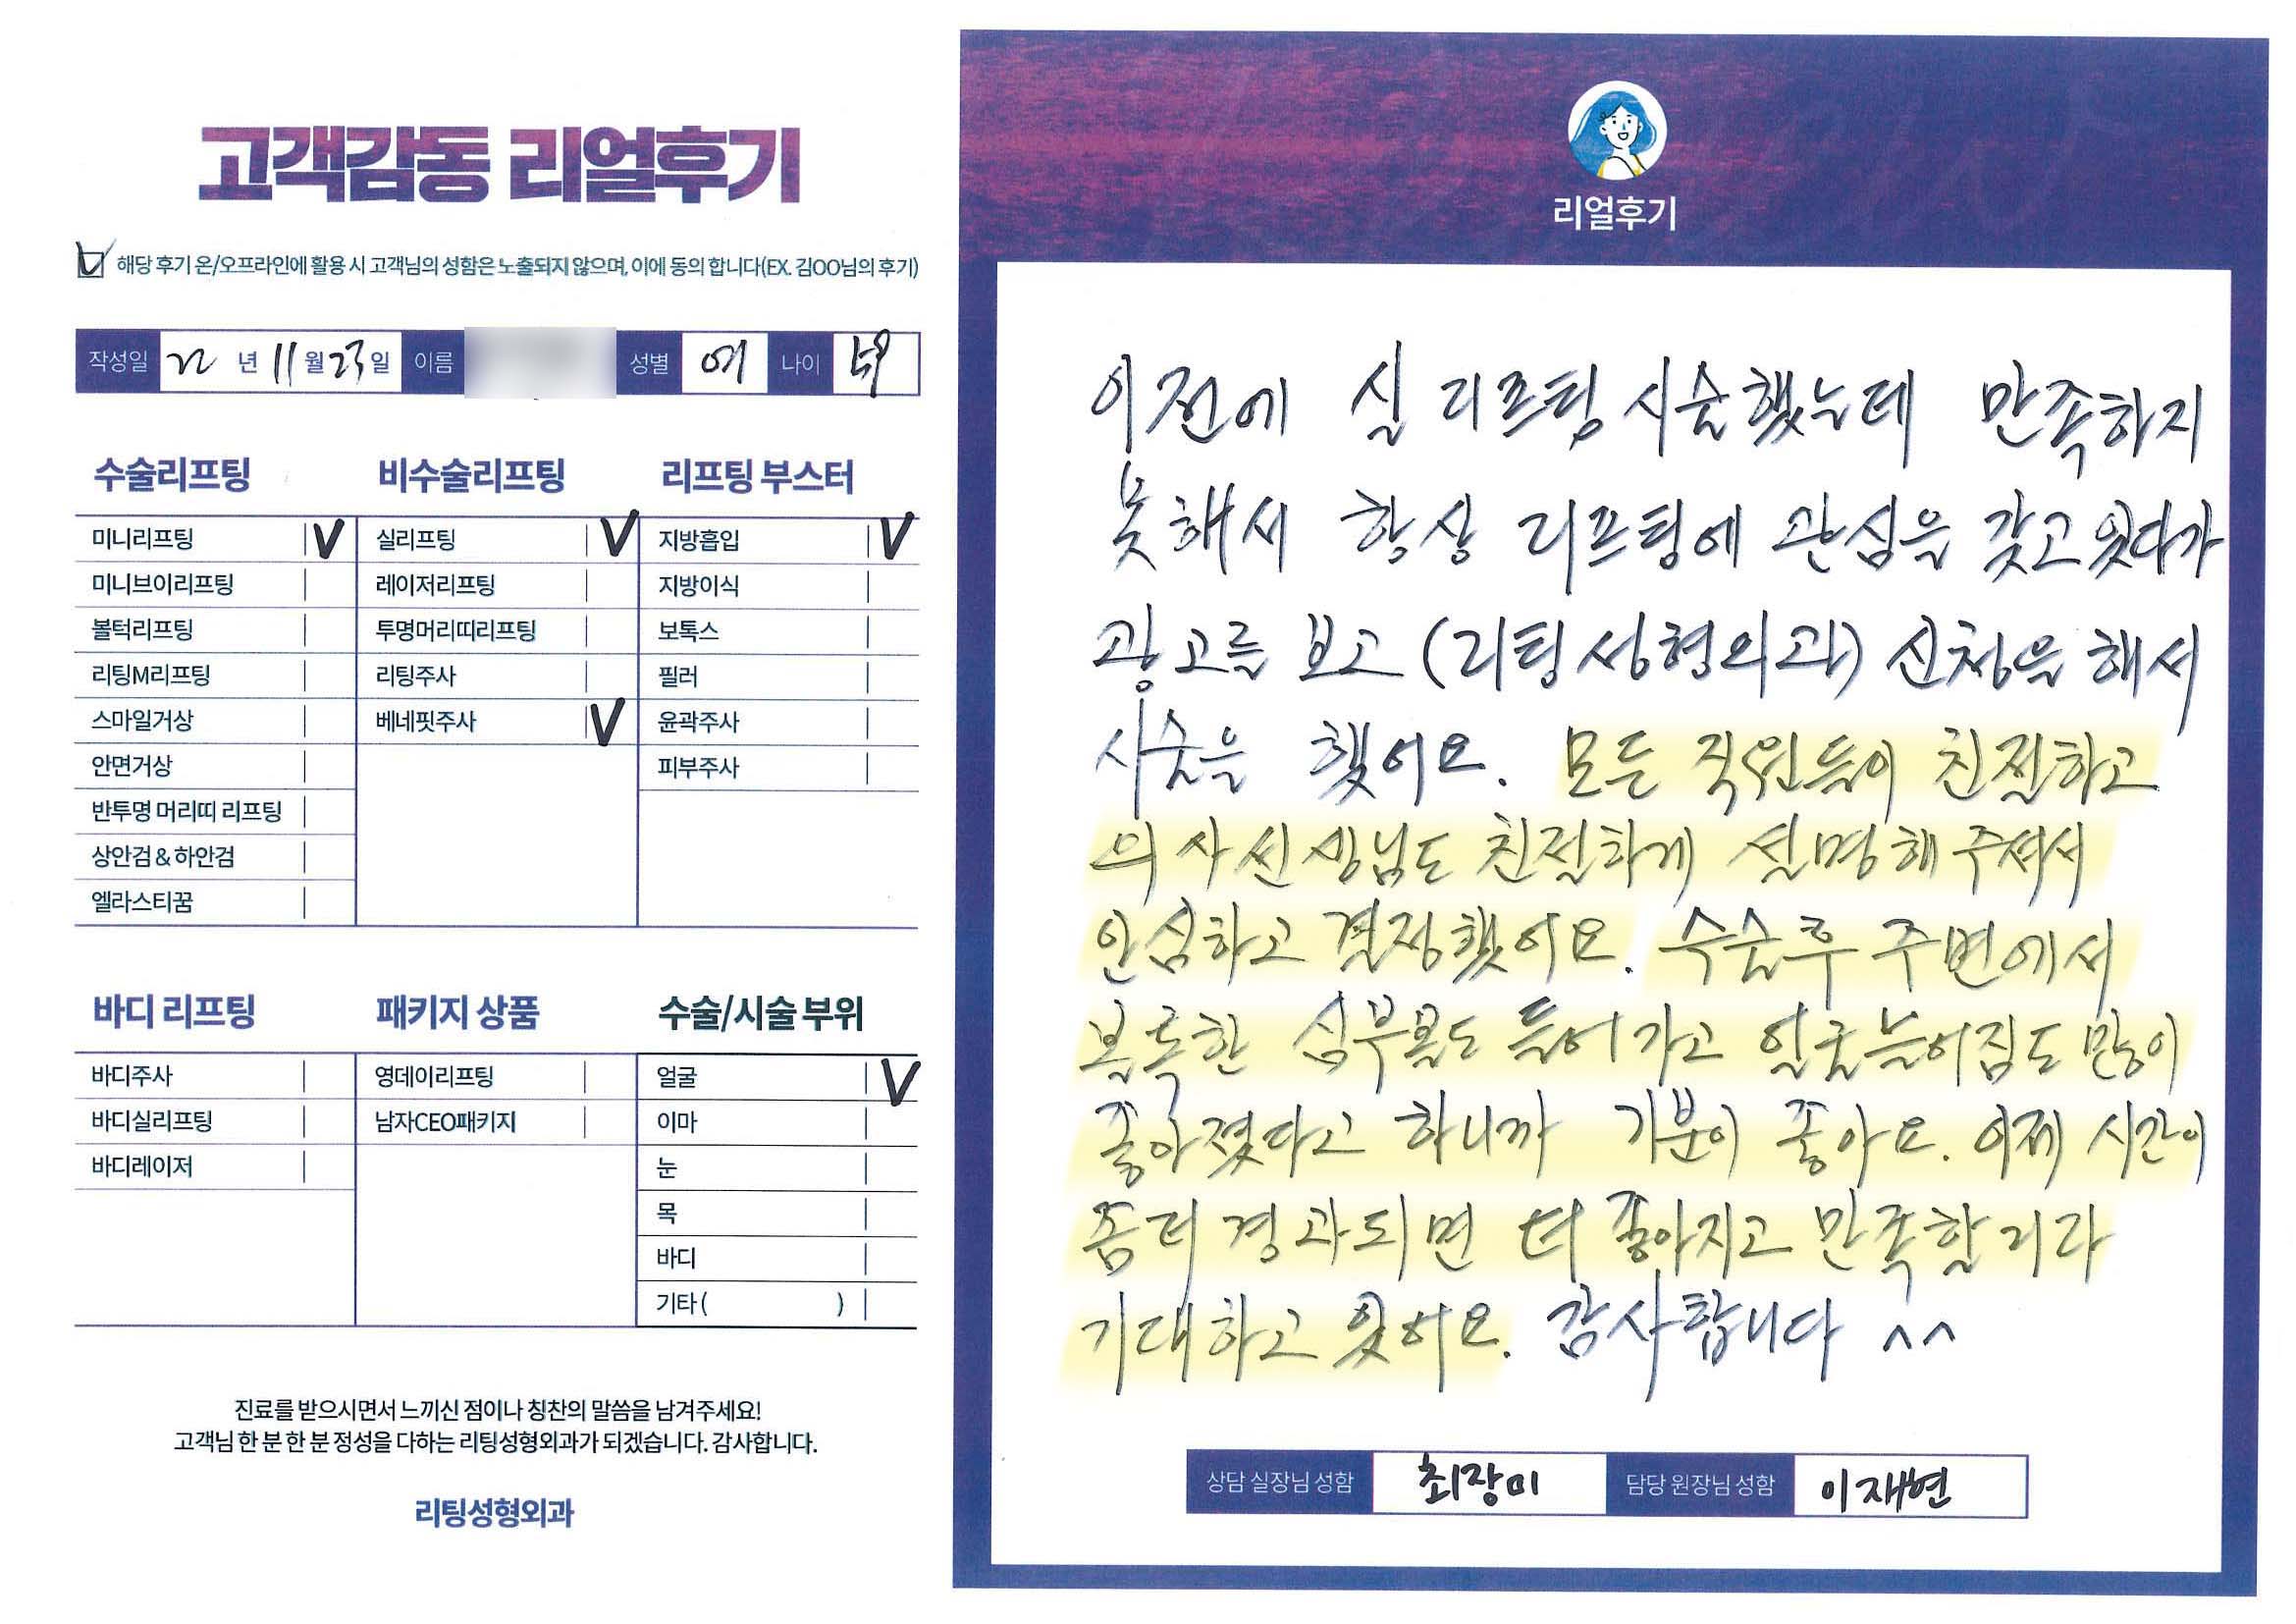 고객감동 리얼후기
해당 후기 온/오프라인에 활용 시 고객님의 성함은 노출되지 않으며, 이에 동의 합니다(EX. 김OO님의 후기)
작성일 22 년 11 월 23 일 이름 성별 여 나이
수술리프팅
미니리프팅 V
미니브이리프팅
볼턱리프팅
리팅M리프팅
스마일거상
안면거상
반투명 머리띠 리프팅
상안검 & 하안검
엘라스티꿈
비수술리프팅
실리프팅 V
레이저리프팅
투명머리띠리프팅
리팅주사
베네핏주사 V
리프팅 부스터
지방흡입 V
지방이식
보톡스
필러
윤곽주사
피부주사
바디 리프팅
바디주사
바디실리프팅
바디레이저
패키지 상품
영데이리프팅
남자CEO패키지
수술/시술 부위
얼굴 V
이마
눈
목
바디
기타 ( )
진료를 받으시면서 느끼신 점이나 칭찬의 말씀을 남겨주세요!
고객님 한 분 한 분 정성을 다하는 리팅성형외과가 되겠습니다. 감사합니다.
리팅성형외과
리얼후기
이전에 실 리프팅 시술했는데 만족하지
못해서 항상 리프팅에 관심을 갖고 있다가
광고를 보고 (리팅성형외과) 신청을 해서
시술을 했어요. 모든 직원들이 친절하고
의사 선생님도 친절하게 설명해 주셔서
안심하고 결정했어요. 수술후 주변에서
볼록한 심부볼도 들어가고 얼굴늘어짐도 많이
좋아졌다고 하니까 기분이 좋아요. 이제 시간이
좀더 경과되면 더 좋아지고 만족할거라
기대하고 있어요. 감사합니다 ^^
상담 실장님 성함 최장미 담당 원장님 성함 이재현